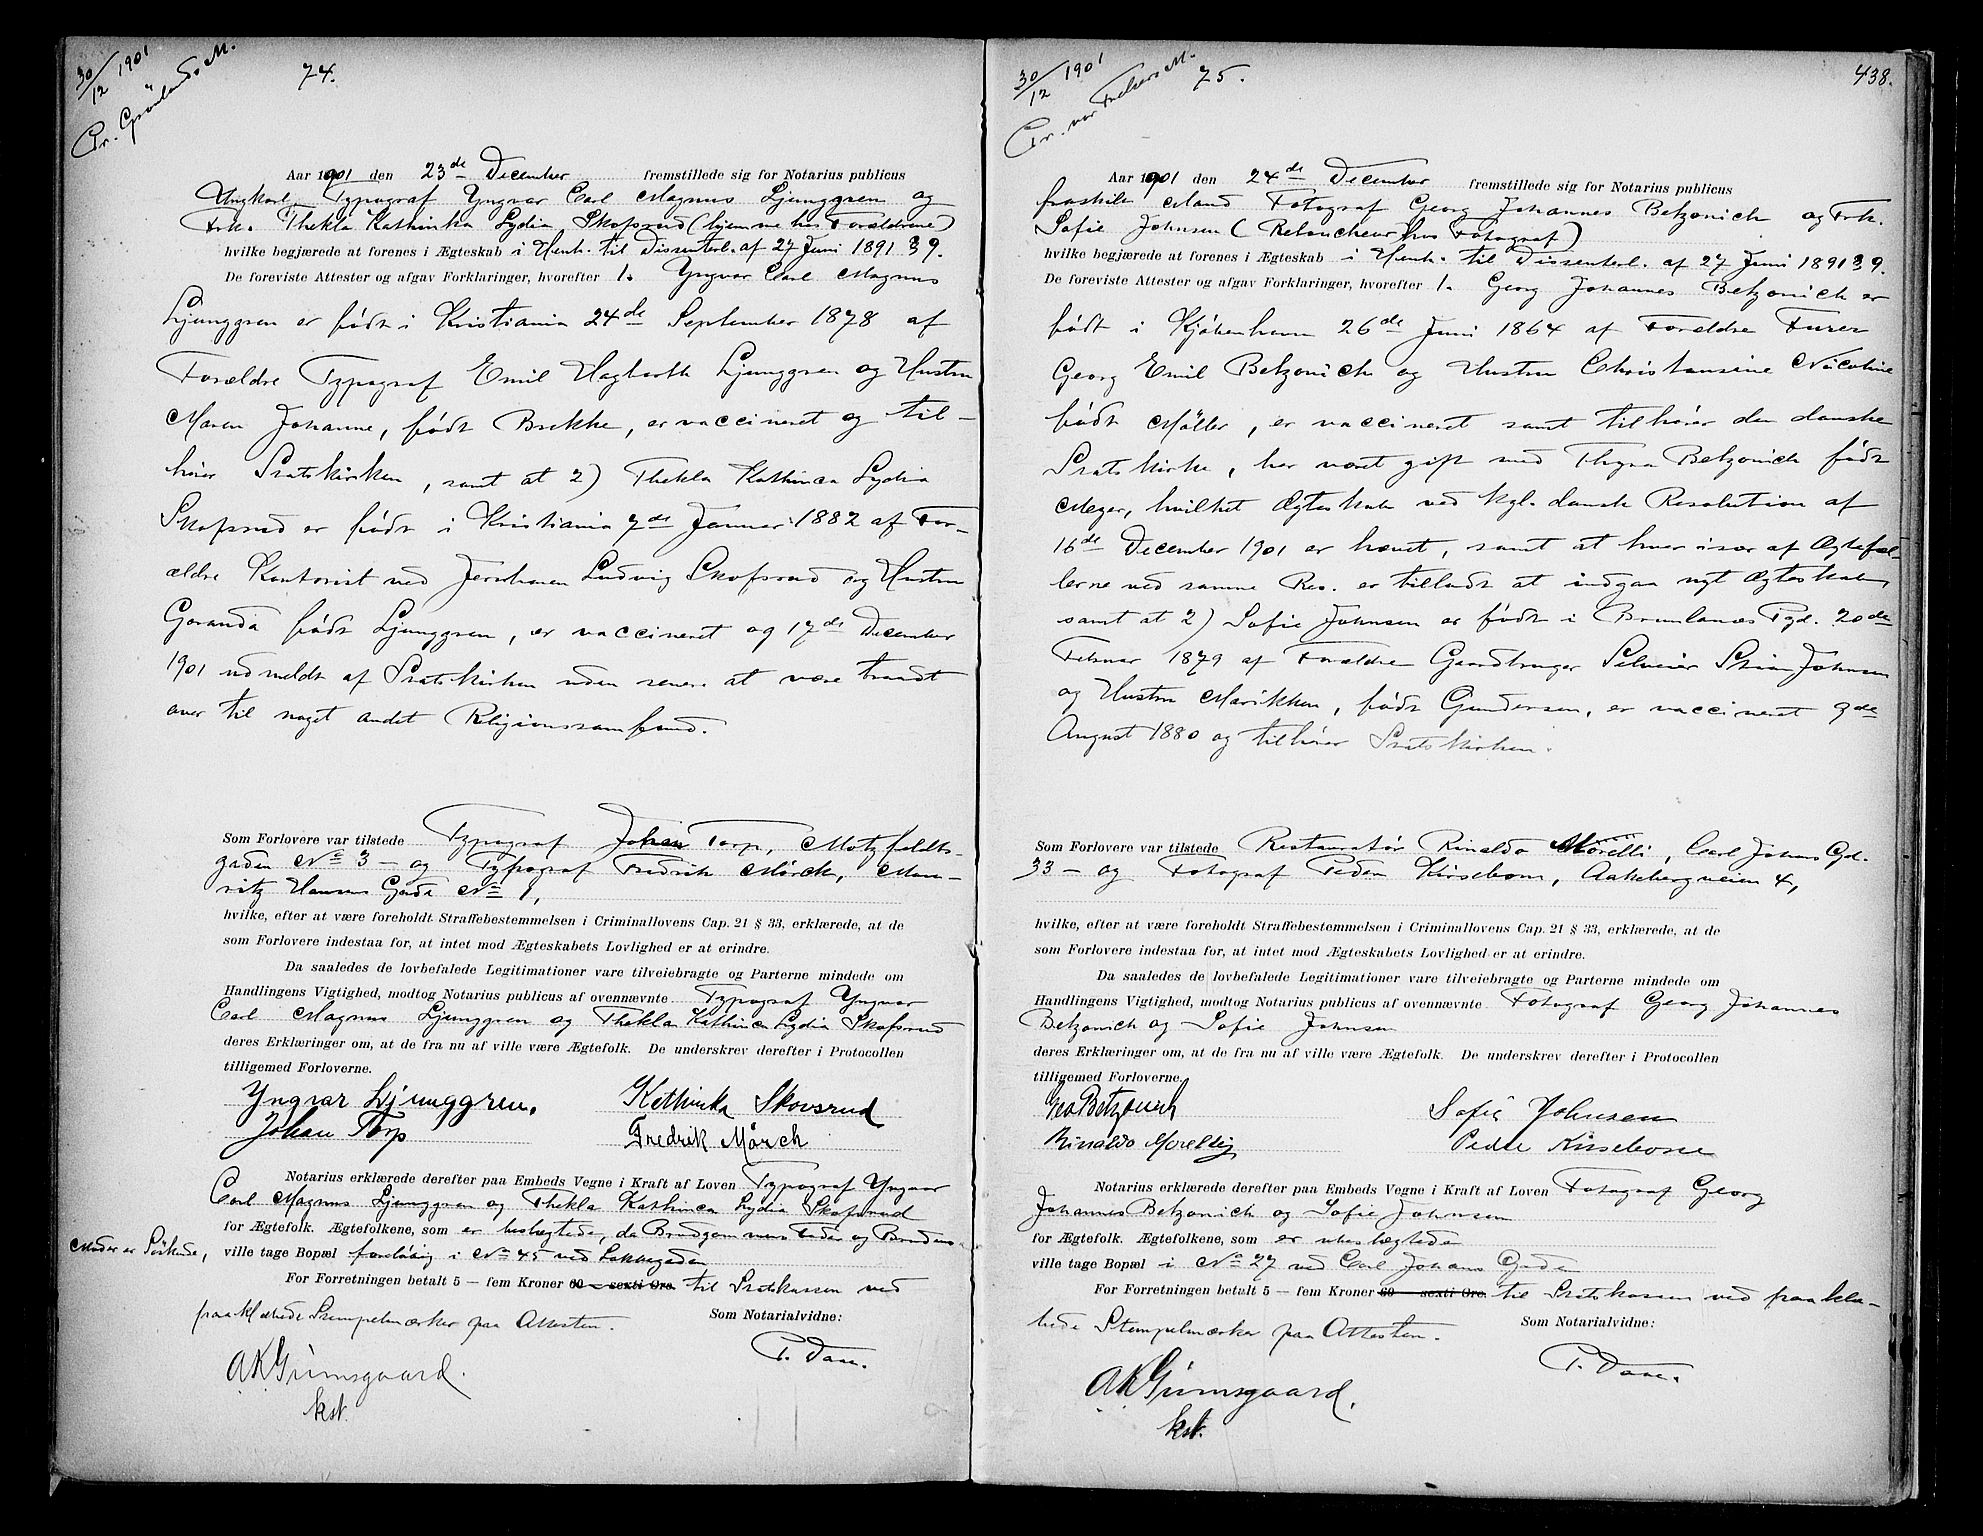 30/12 1901
Pr. Grönlands M.
74.
Aar 1901 den 23de December fremstillede sig for Notarius publicus
Ungkarl, Typograf Yngvar Carl Magnus Ljunggren og
Frk. Thekla Kathinka Lydia Skofsrud (hjemme hos Forældrene)
hvilke begjærede at forenes i Ægteskab i Henh. til Dissenterl. af 27 Juni 1891 § 9.
De foreviste Attester og afgav Forklaringer, hvorefter 1. Yngvar Carl Magnus
Ljunggren er født i Kristiania 24de September 1878 af
Forældre Typograf Emil Hagbarth Ljunggren og Hustru
Maren Johanne, født Brekke, er vaccineret og til-
hører Statskirken, samt at 2) Thekla Kathinca Lydia
Skofsrud er født i Kristiania 7de Januar 1882 af For-
ældre Kontorist ved Jernbanen Ludvig Skofsrud og Hustru
Goranda født Ljunggren, er vaccineret og 17de December
1901 udmeldt af Statskirken uden senere at være traadt
over til noget andet Religionssamfund.
Som Forlovere var tilstede Typograf Johan Torp, Motzfeldts-
gaden No 3 - og Typograf Fredrik Mörch, Mau-
ritz Hansens Gade No 1,
hvilke, efter at være foreholdt Straffebestemmelsen i Criminallovens Cap. 21 § 33, erklærede, at de
som Forlovere indestaa for, at intet mod Ægteskabets Lovlighed er at erindre.
Da saaledes de lovbefalede Legitimationer vare tilveiebragte og Parterne mindede om
Handlingens Vigtighed, modtog Notarius publicus af ovennævnte Typograf Yngvar
Carl Magnus Ljunggren og Thekla Kathinca Lydia Skofsrud
deres Erklæringer om, at de fra nu af ville være Ægtefolk. De underskrev derefter i Protocollen
tilligemed Forloverne.
Yngvar Ljunggren. Kathinka Skovsrud
Johan Torp Fredrik Mörch
Notarius erklærede derefter paa Embeds Vegne i Kraft af Loven Typograf Yngvar
Carl Magnus Ljunggren og Thekla Kathinca Lydia Skofsrud
for Ægtefolk. Ægtefolkene, som er beslægtede, da Brudgommens Fader og Brudens
Moder er Södskende, ville tage Bopæl foreløbig i No 45 ved Lakkegaden
For Forretningen betalt 5 — fem Kroner 60 — sexti Øre. til Statskassen ved
paaklæbede Stempelmærker paa Attesten. Som Notarialvidne:
A.K. Grimsgaard. P. Dau.
kst.
30/12 1901
Pr. vor Frelsers M.
75.
438.
Aar 1901 den 24de December fremstillede sig for Notarius publicus
fraskilt Mand Fotograf Georg Johannes Betzonich og Frk.
Sofie Johnsen (Retoucheur hos Fotograf)
hvilke begjærede at forenes i Ægteskab i Henh. til Dissenterl. af 27 Juni 1891 § 9.
De foreviste Attester og afgav Forklaringer, hvorefter 1. Georg Johannes Betzonich er
født i Kjøbenhavn 26de Juni 1864 af Forældre Furer
Georg Emil Betzonich og Hustru Christiansine Nicoline
født Möller, er vaccineret samt tilhører den danske
Statskirke, har været gift med Thyra Betzonich født
Meyer, hvilket Ægteskab ved kgl. dansk Resolution af
16de December 1901 er hævet, samt at hver især af Ægtefæl-
lerne ved samme Res. er tilladt at indgaa nyt Ægteskab,
samt at 2) Sofie Johnsen er født i Brunlanes Pgd. 20de
Februar 1879 af Forældre Gaardbruger Johnsen
og Hustru Marikken, født Gundersen, er vaccineret 9de
August 1880 og tilhører Statskirken.
Som Forlovere var tilstede Restauratør Rinaldo Morelli, Carl Johans Gd.
33 - og Fotograf Peder Kirsebom, Aakebergveien 4,
hvilke, efter at være foreholdt Straffebestemmelsen i Criminallovens Cap. 21 § 33, erklærede, at de
som Forlovere indestaa for, at intet mod Ægteskabets Lovlighed er at erindre.
Da saaledes de lovbefalede Legitimationer vare tilveiebragte og Parterne mindede om
Handlingens Vigtighed, modtog Notarius publicus af ovennævnte Fotograf Georg Johannes
Betzonich og Sofie Johnsen
deres Erklæringer om, at de fra nu af ville være Ægtefolk. De underskrev derefter i Protocollen
tilligemed Forloverne.
Geo Betzonich Sofie Johnsen
Rinaldo Morelli Peder Kirsebom
Notarius erklærede derefter paa Embeds Vegne i Kraft af Loven Fotograf Georg
Johannes Betzonich og Sofie Johnsen
for Ægtefolk. Ægtefolkene, som er ubeslægtede
ville tage Bopæl i No 27 ved Carl Johans Gaden
For Forretningen betalt 5 — fem Kroner 60 — sexti Øre. til Statskassen ved paaklæ-
bede Stempelmærker paa Attesten. Som Notarialvidne:
A.K. Grimsgaard. P. Dau.
kst.